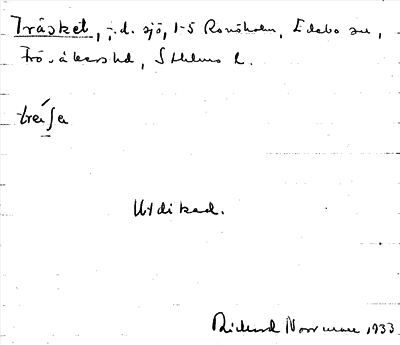 Träsket, f.d. sjö, 1-5 Ronöholm, Edebo sn,
Frösåkers hd, Sthlms l.
Utdikad.
Richard Norrman 1933